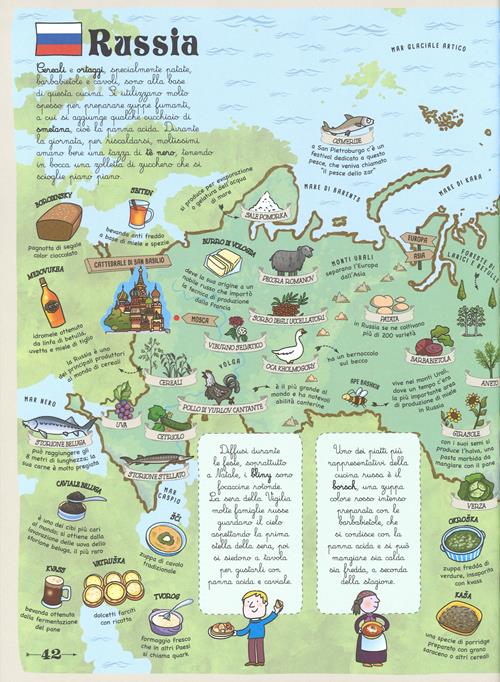 Russia
Cereali e ortaggi, specialmente patate,
barbabietole e cavoli, sono alla base
di questa cucina. Si utilizzano molto
spesso per preparare zuppe fumanti,
a cui si aggiunge qualche cucchiaio di
smetana, cioè la panna acida. Durante
la giornata, per riscaldarsi, moltissimi
amano bere una tazza di tè nero, tenendo
in bocca una zolletta di zucchero che si
scioglie piano piano.
MAR GLACIALE ARTICO
OSMERIDE
a San Pietroburgo c'è un
festival dedicato a questo
pesce, che veniva chiamato
"il pesce dello zar"
MARE DI BARENTS
MARE DI KARA
si produce per evaporazione
o gelatura dell'acqua
di mare
SALE POMORKA
BORODINSKY
pagnotta di segale
color cioccolato
SBITEN
bevanda anti freddo
a base di miele e spezie
BURRO DI VOLOGDA
deve la sua origine a un
nobile russo che importò
la tecnica di produzione
dalla Francia
PECORA ROMANOV
MONTI URALI
separano l'Europa
dall'Asia
EUROPA
ASIA
FORESTE DI
LARICI E BETULLE
MEDOVUKHA
idromele ottenuto
da linfa di betulla,
uvetta e miele di tiglio
CATTEDRALE DI SAN BASILIO
MOSCA
SORBO DEGLI UCCELLATORI
PATATA
in Russia se ne coltivano
più di 200 varietà
VIBURNO SELVATICO
la Russia è uno
dei principali produttori
al mondo di cereali
CEREALI
VOLGA
OCA KHOLMOGORY
ha un bernoccolo
sul becco
BARBABIETOLA
POLLO DI YURLOV CANTANTE
è il più grande al
mondo e ha notevoli
abilità canterine
APE BASHKIR
vive nei monti Urali,
dove un tempo c'era
la più importante area
di produzione di miele
in Russia
ANETO
MAR NERO
UVA
CETRIOLO
STORIONE BELUGA
può raggiungere gli
8 metri di lunghezza; la
sua carne è molto pregiata
STORIONE STELLATO
MAR
CASPIO
GIRASOLE
con i suoi semi si
produce l'halva, una
pasta morbida da
mangiare con il pane
VERZA
CAVIALE BELUGA
è uno dei cibi più cari
al mondo; si ottiene dalla
lavorazione delle uova dello
storione beluga, il più raro
ŠČI
zuppa di cavolo
tradizionale
Diffusi durante
le feste, soprattutto
a Natale, i bliny sono
focaccine rotonde.
La sera della Vigilia
molte famiglie russe
guardano il cielo
aspettando la prima
stella della sera, poi
si siedono a tavola
per gustarli con
panna acida e caviale.
Uno dei piatti più
rappresentativi della
cucina russa è il
borsch, una zuppa
colore rosso intenso
preparata con le
barbabietole, che
si condisce con la
panna acida e si può
mangiare sia calda
sia fredda, a seconda
della stagione.
OKROŠKA
zuppa fredda di
verdure, insaporita
con kvass
KVASS
bevanda ottenuta
dalla fermentazione
del pane
VATRUŠKA
dolcetti farciti
con ricotta
TVOROG
formaggio fresco
che in altri Paesi
si chiama quark
KAŠA
una specie di porridge
preparato con grano
saraceno o altri cereali
42